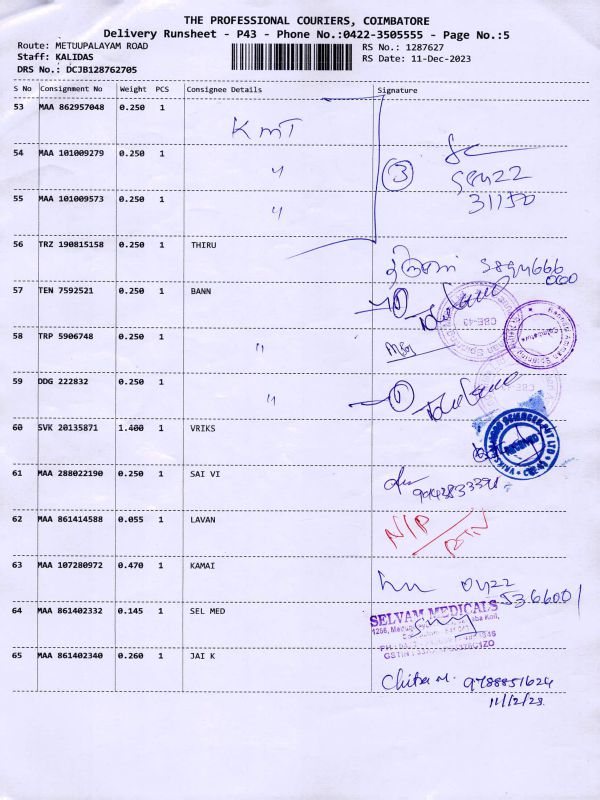 THE PROFESSIONAL COURIERS, COIMBATORE
Delivery Runsheet - P43 - Phone No.:0422-3505555 - Page No.:5
Route: METUUPALAYAM ROAD RS No.: 1287627
Staff: KALIDAS RS Date: 11-Dec-2023
DRS No.: DCJB128762705
S No Consignment No Weight PCS Consignee Details Signature
53 MAA 862957048 0.250 1 KMT
54 MAA 101009279 0.250 1 〃 3
55 MAA 101009573 0.250 1 〃
56 TRZ 190815158 0.250 1 THIRU
57 TEN 7592521 0.250 1 BANN
58 TRP 5906748 0.250 1 〃
59 DDG 222832 0.250 1 〃
60 SVK 20135871 1.400 1 VRIKS
RECEIVED
61 MAA 288022190 0.250 1 SAI VI
62 MAA 861414588 0.055 1 LAVAN N/P
63 MAA 107280972 0.470 1 KAMAI
64 MAA 861402332 0.145 1 SEL MED
SELVAM MEDICALS
65 MAA 861402340 0.260 1 JAI K
Chitra M. 9788851624
11/12/23